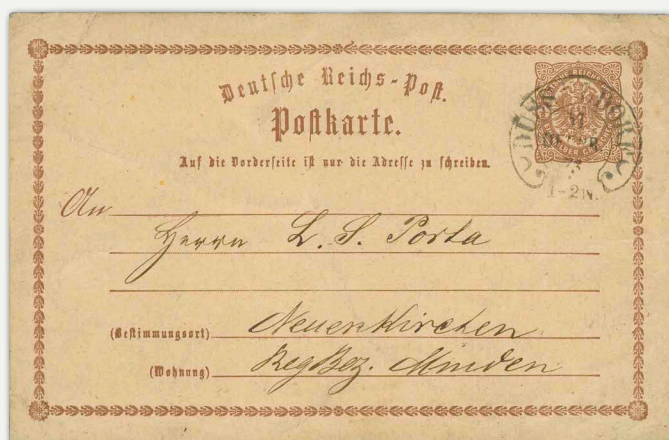 Deutsche Reichs-Post.
Postkarte.
Auf die Vorderseite ist nur die Adresse zu schreiben.
17
1-2N.
An
Herrn L. S. Porta
(Bestimmungsort) Neuenkirchen
(Wohnung) RegBez. Minden